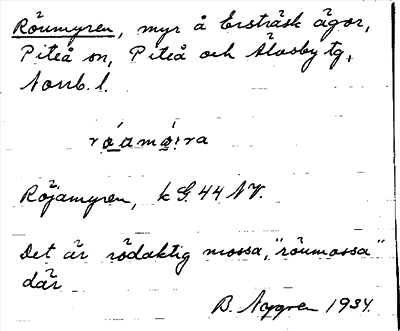 Röumyren, myr å Ersträsk ägor,
Piteå sn, Piteå och Älvsby tg,
Norrb. l.
róamø̀ra
Röjamyren, k G. 44 NV.
Det är rödaktig mossa, "röumossa"
där
B. Nygren 1934.